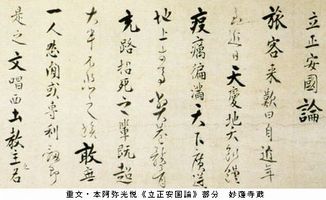 立正安國論
旅客来歎曰自近年
至近日天變地夭飢饉
疫癘遍満天下廣迸
地上牛馬斃巷骸骨
充路招死之輩既超
大半不悲之族敢無
一人然間或專利劔即
是之文唱西土教主名
重文・本阿弥光悦《立正安国論》部分　妙蓮寺蔵